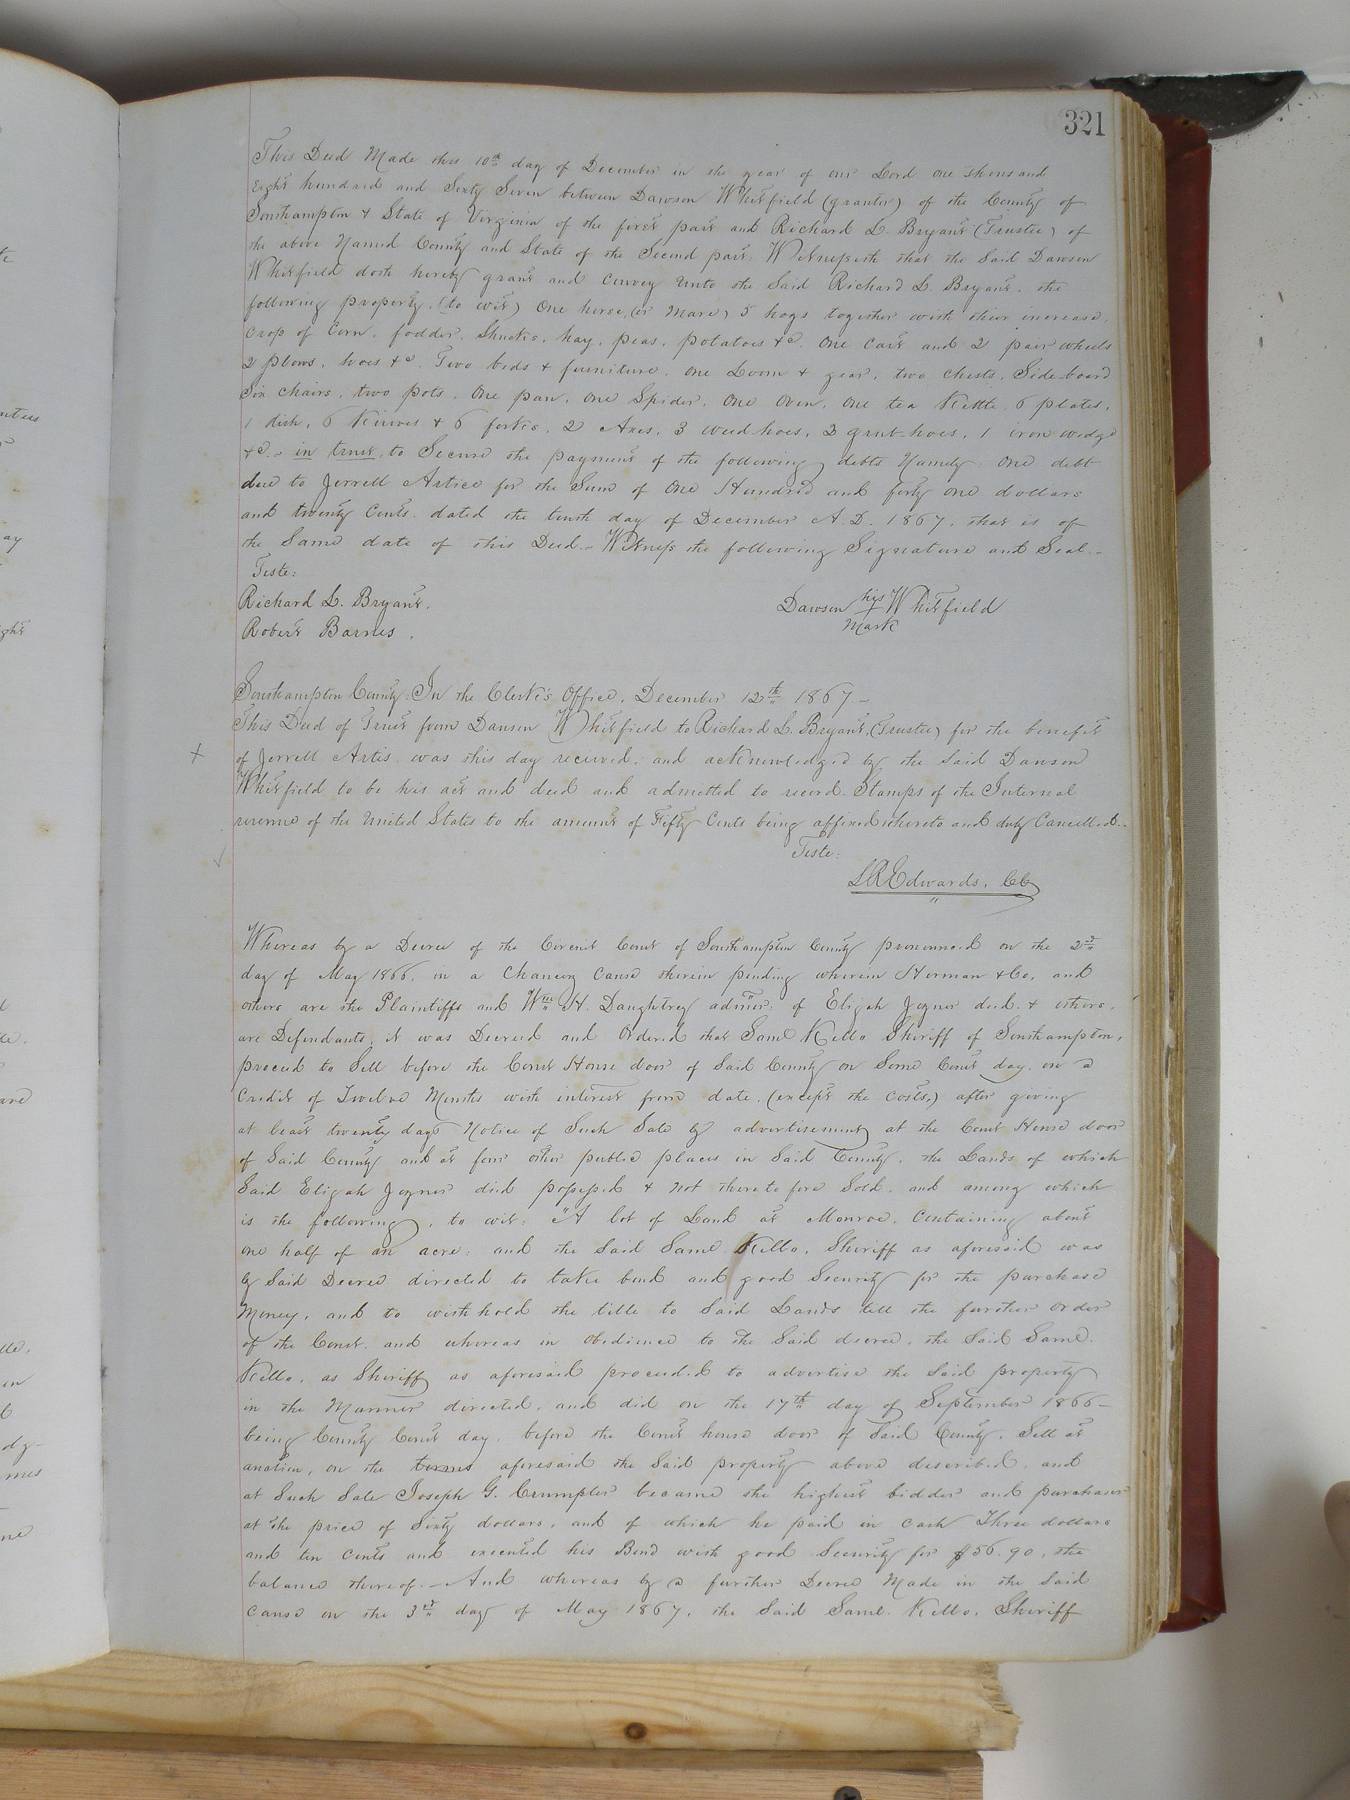 321
This Deed Made this 10th day of December in the year of our Lord One thousand
Eight hundred and Sixty Seven between Dawson Whitfield (grantor) of the County of
Southampton & State of Virginia of the first part and Richard L. Bryant (Trustee) of
the above Named County and State of the Second part. Witnesseth that the Said Dawson
Whitfield doth hereby grant and Convey unto the Said Richard L. Bryant, the
following property, (to wit) One horse, (or Mare) 5 hogs together with their increase,
Crop of Corn, fodder, Shucks, hay, peas, potatoes &c. One Cart and 2 pair wheels
2 plows, hoes &c. Two beds & furniture, One Loom & gear, two chests, Side-board
Six chairs, two pots, One pan, One Spider, One Oven, One tea Kettle, 6 plates,
1 dish, 6 Knives & 6 forks, 2 Axes, 3 weed-hoes, 3 grub-hoes, 1 iron wedge
&c. - in trust, to Secure the payment of the following debts Namely: One debt
due to Jerrell Artice for the Sum of One Hundred and forty one dollars
and twenty Cents. dated the tenth day of December A.D. 1867, that is of
the Same date of this Deed. - Witness the following Signature and Seal. -
Teste:
Richard L. Bryant.
Robert Barnes.
Dawson his + Whitfield
Mark
Southampton County: In the Clerk's Office, December 12th 1867 -
This Deed of Trust from Dawson Whitfield to Richard L. Bryant, (Trustee) for the benefit
+ of Jerrell Artis, was this day received, and acknowledged by the said Dawson
Whitfield to be his act and deed and admitted to record. Stamps of the Internal
revenue of the United States to the amount of Fifty Cents being affixed thereto and duly Cancelled. -
Teste:
L R Edwards, CC
Whereas by a Decree of the Circuit Court of Southampton County pronounced on the 2nd
day of May 1866, in a Chancery Cause therein pending wherein Herman & Co, and
others are the Plaintiffs and Wm H. Daughtrey admr. of Elijah Joyner decd. & others,
are Defendants, it was Decreed and Ordered that Saml Kello Sheriff of Southampton,
proceed to Sell before the Court House door of Said County on Some Court day, on a
Credit of Twelve Months with interest from date, (except the costs,) after giving
at least twenty days Notice of Such Sale by advertisement at the Court House door
of Said County and at four other public places in Said County, the Lands of which
Said Elijah Joyner died possessed & not theretofore Sold, and among which
is the following, to wit: "A lot of Land at Monroe, Containing about
one half of an acre: and the Said Saml. Kello, Sheriff as aforesaid was
by Said Decree directed to take bond and good Security for the purchase
Money, and to withhold the title to Said Lands till the further Order
of the Court, and whereas in Obedience to the Said decree, the Said Saml.
Kello, as Sheriff as aforesaid proceeded to advertise the Said property
in the Manner directed, and did on the 17th day of September 1866 -
being County Court day, before the Court house door of Said County, Sell at
auction, on the terms aforesaid the Said property above described, and
at Such Sale Joseph G. Crumpler became the highest bidder and purchaser
at the price of Sixty dollars, and of which he paid in Cash Three dollars
and ten Cents and executed his Bond with good Security for $56.90, the
balance thereof. - And whereas by a further Decree Made in the Said
Cause on the 3rd day of May 1867, the Said Saml. Kello, Sheriff